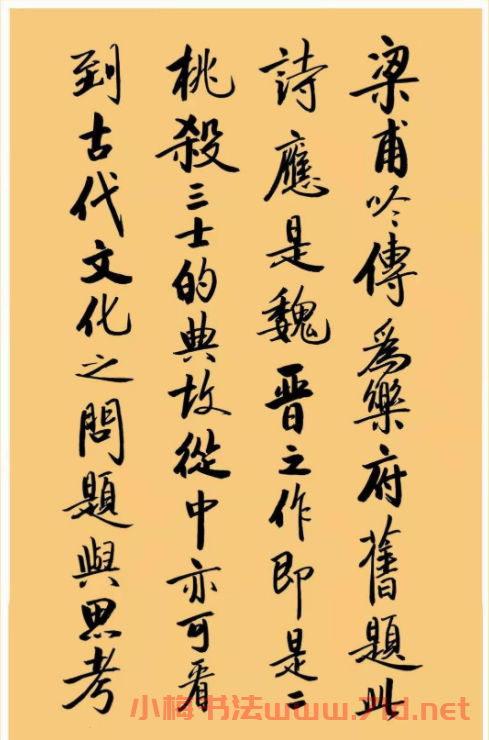 梁甫吟傳為樂府舊題此
詩應是魏晋之作即是二
桃殺三士的典故從中亦可看
到古代文化之問題與思考
小梅书法www.71d.net